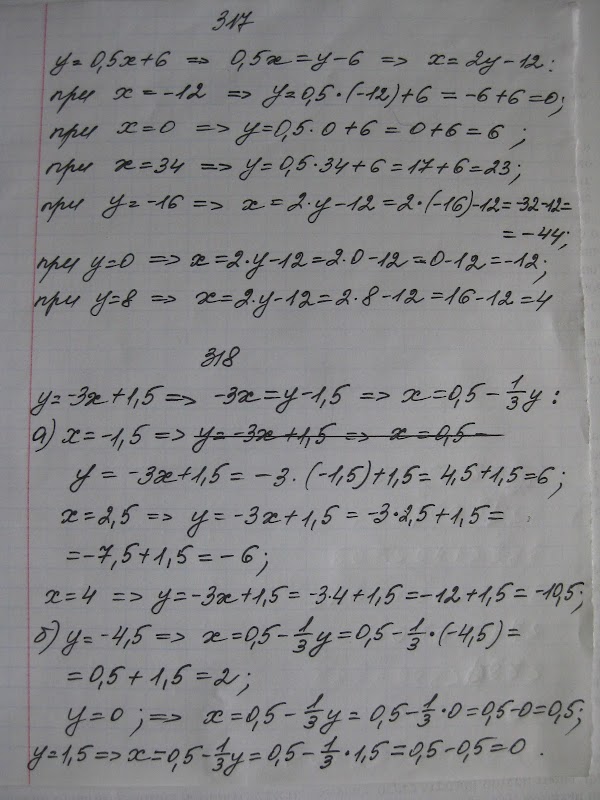 317
y=0,5x+6 => 0,5x=y-6 => x=2y-12:
при x=-12 => y=0,5·(-12)+6=-6+6=0;
при x=0 => y=0,5·0+6=0+6=6;
при x=34 => y=0,5·34+6=17+6=23;
при y=-16 => x=2·y-12=2·(-16)-12=-32-12=
=-44;
при y=0 => x=2·y-12=2·0-12=0-12=-12;
при y=8 => x=2·y-12=2·8-12=16-12=4
318
y=-3x+1,5 => -3x=y-1,5 => x=0,5-1/3y:
а) x=-1,5 => y=-3x+1,5 => x=0,5-
y=-3x+1,5=-3·(-1,5)+1,5=4,5+1,5=6;
x=2,5 => y=-3x+1,5=-3·2,5+1,5=
=-7,5+1,5=-6;
x=4 => y=-3x+1,5=-3·4+1,5=-12+1,5=-10,5;
б) y=-4,5 => x=0,5-1/3y=0,5-1/3·(-4,5)=
=0,5+1,5=2;
y=0; => x=0,5-1/3y=0,5-1/3·0=0,5-0=0,5;
y=1,5 => x=0,5-1/3y=0,5-1/3·1,5=0,5-0,5=0.